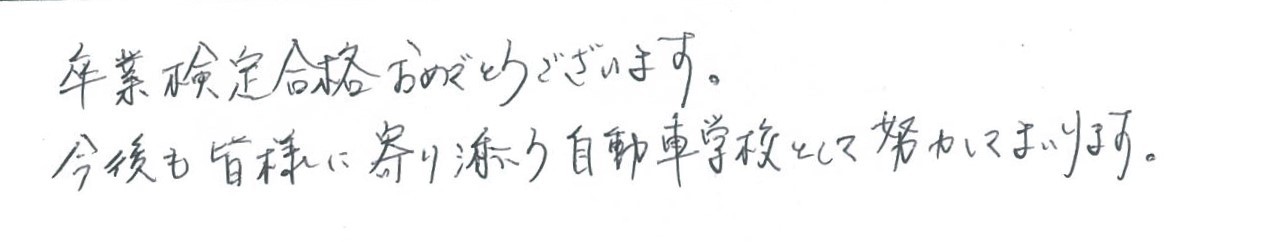 卒業検定合格おめでとうございます。
今後も皆様に寄り添う自動車学校として努力してまいります。